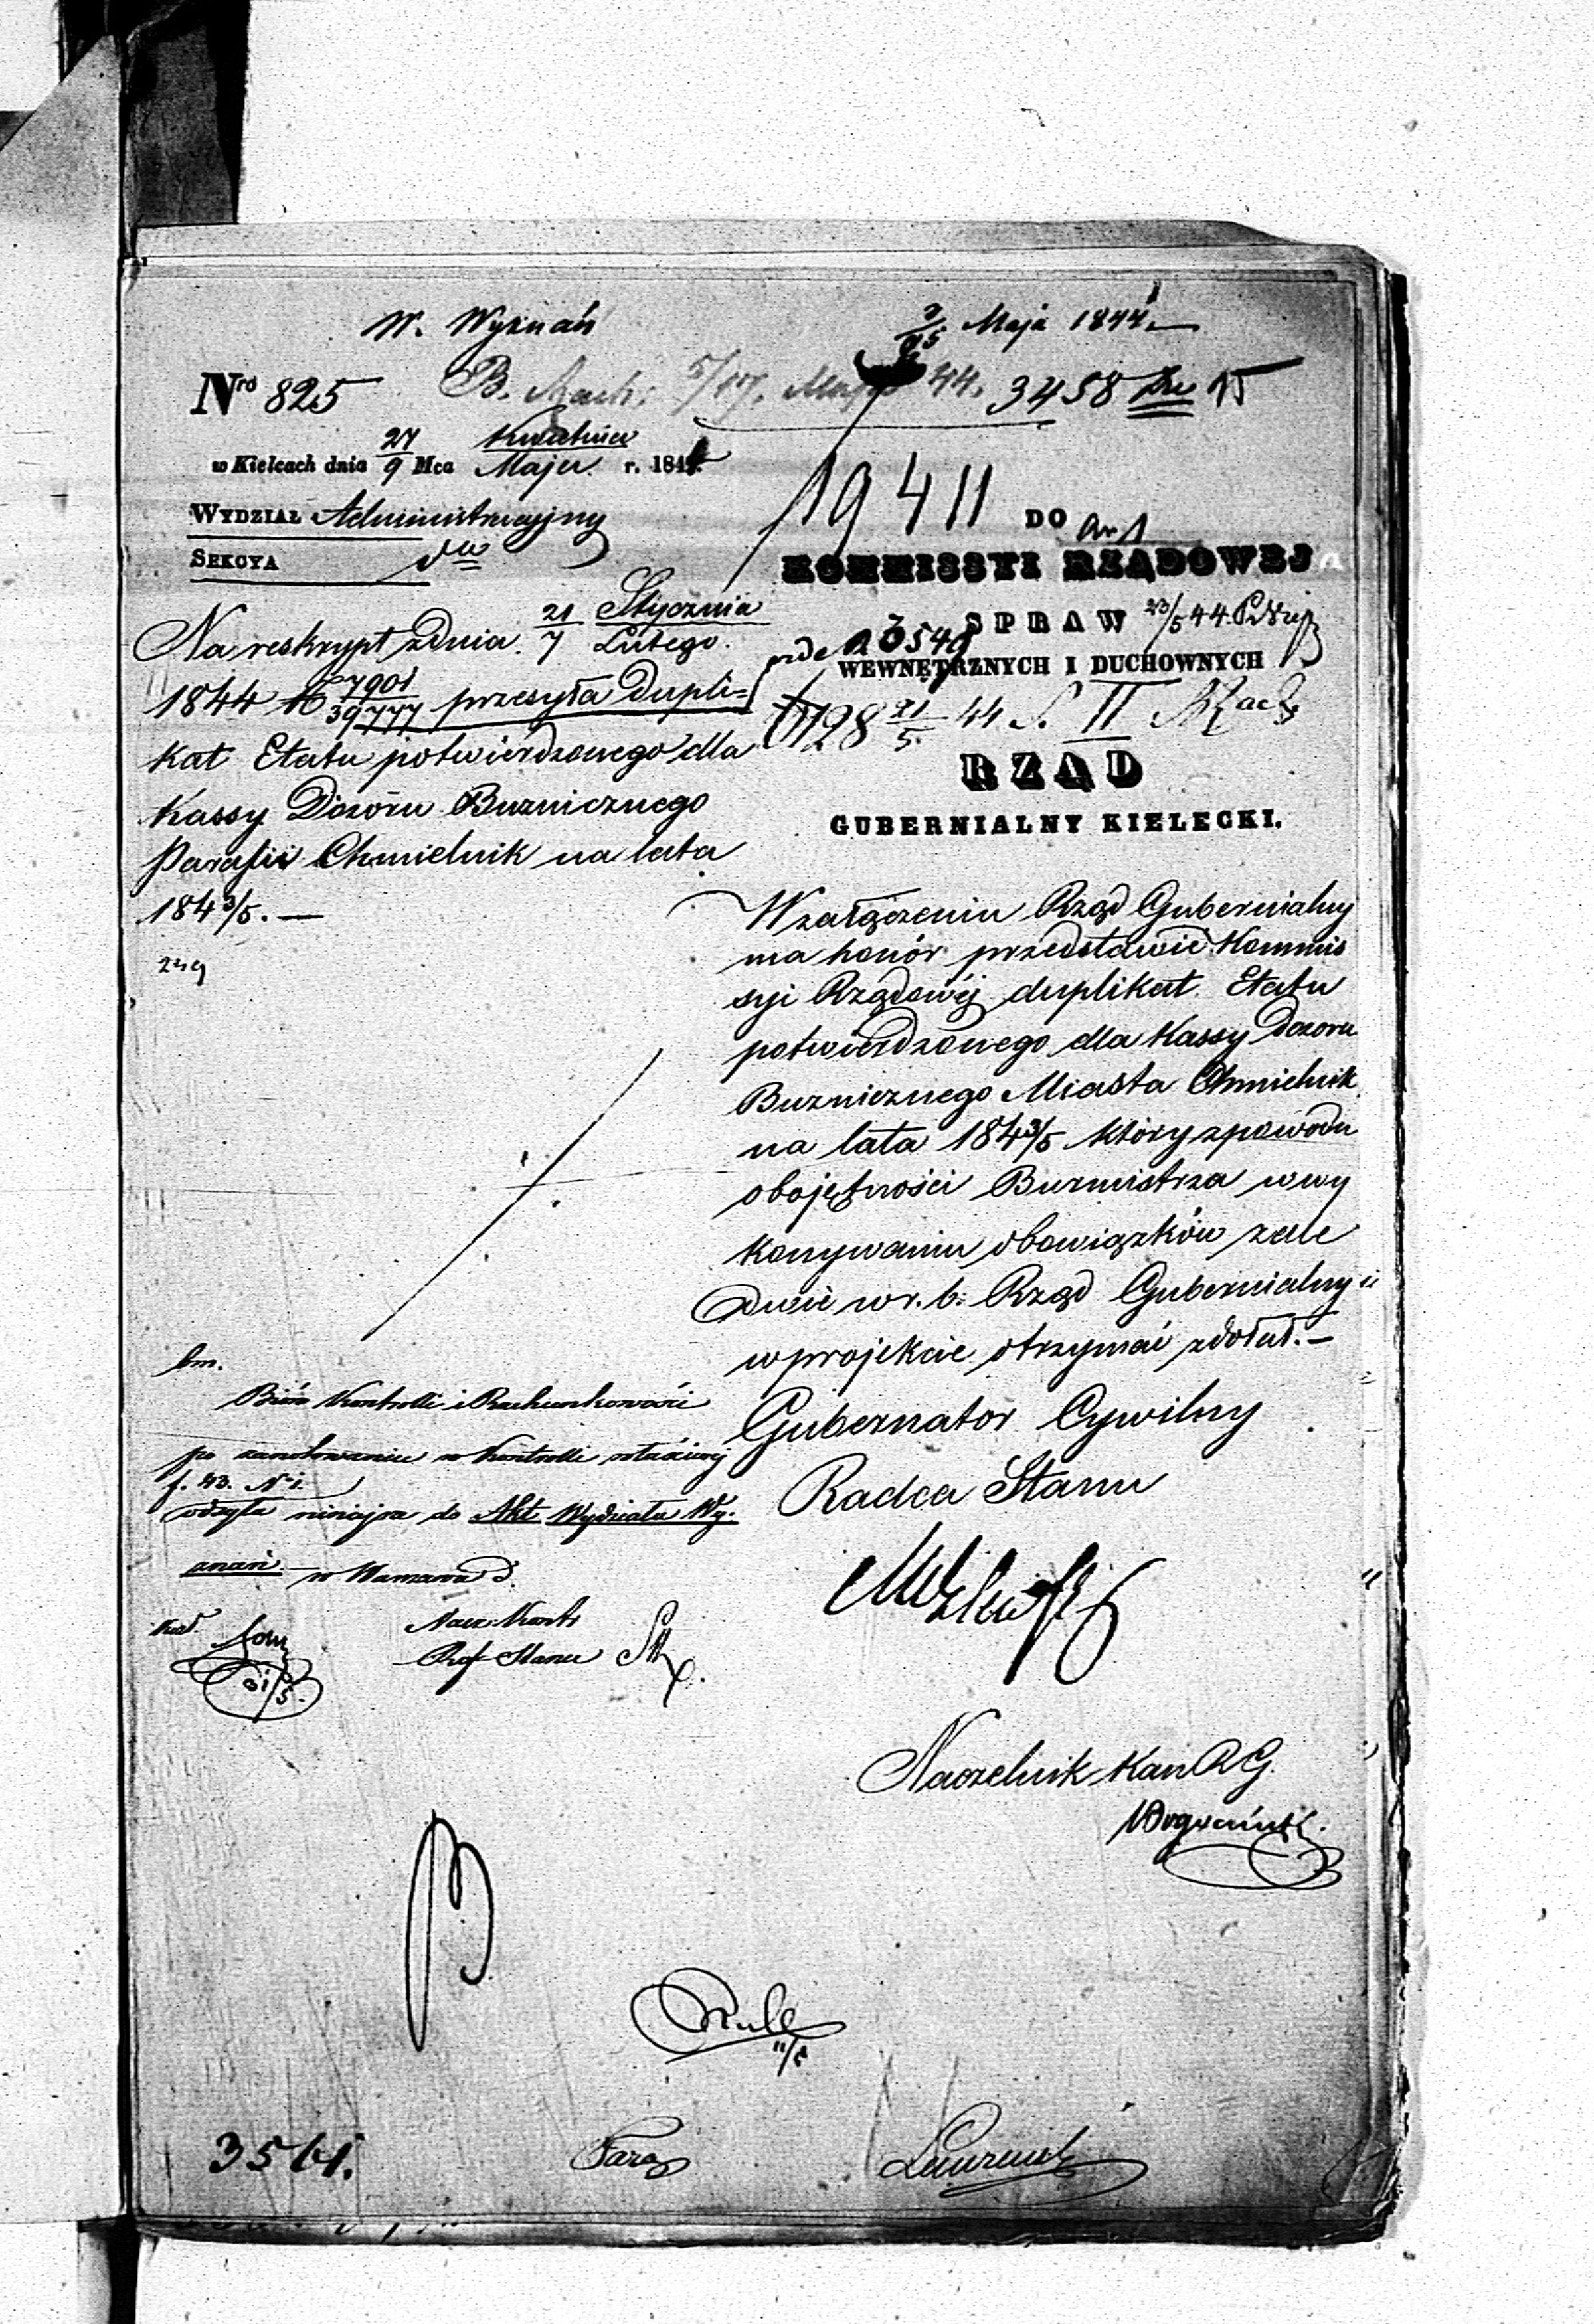 W. Wyznań
3/15 Maja 1844
Nro 825
B. Rach: 5/17. Maja 44. 3458
w Kielcach dnia 27/9 Mca Kwietnia/Maja r. 1844
19411
WYDZIAŁ Administracyjny
SEKCYA
DO
KOMMISSYI RZĄDOWEJ
SPRAW
23/5 44.
WEWNĘTRZNYCH I DUCHOWNYCH
6128 21/5 44 S. II
RZĄD
GUBERNIALNY KIELECKI.
Na reskrypt z dnia 21/7 Stycznia/Lutego.
1844 N 7901/39777 przesyła dupli=
kat Etatu potwierdzonego dla
Kassy Dozoru Buznicznego
Parafii Chmielnik na lata
184 3/5. —
W załączeniu Rząd Gubernialny
ma honór przedstawić Kommis
syi Rządowéj duplikat Etatu
potwierdzonego dla Kassy Dozoru
Buznicznego Miasta Chmielnik
na lata 184 3/5 który z powodu
obojętności Burmistrza w wy
konywaniu obowiązków zale
dwie w r. b. Rząd Gubernialny
w projekcie otrzymać zdołał. —
Gubernator Cywilny
Radca Stanu
Naczelnik Kan R G.
bm.
Bióro Kontrolli i Rachunkowości
po zanotowaniu w Kontrolli właściwéj
f. 43. N 1.
odsyła niniejsze do Akt Wydziału Wy.
znań. w Warszawie d.
Nacz: Kontr
Rof Stanu
3561.